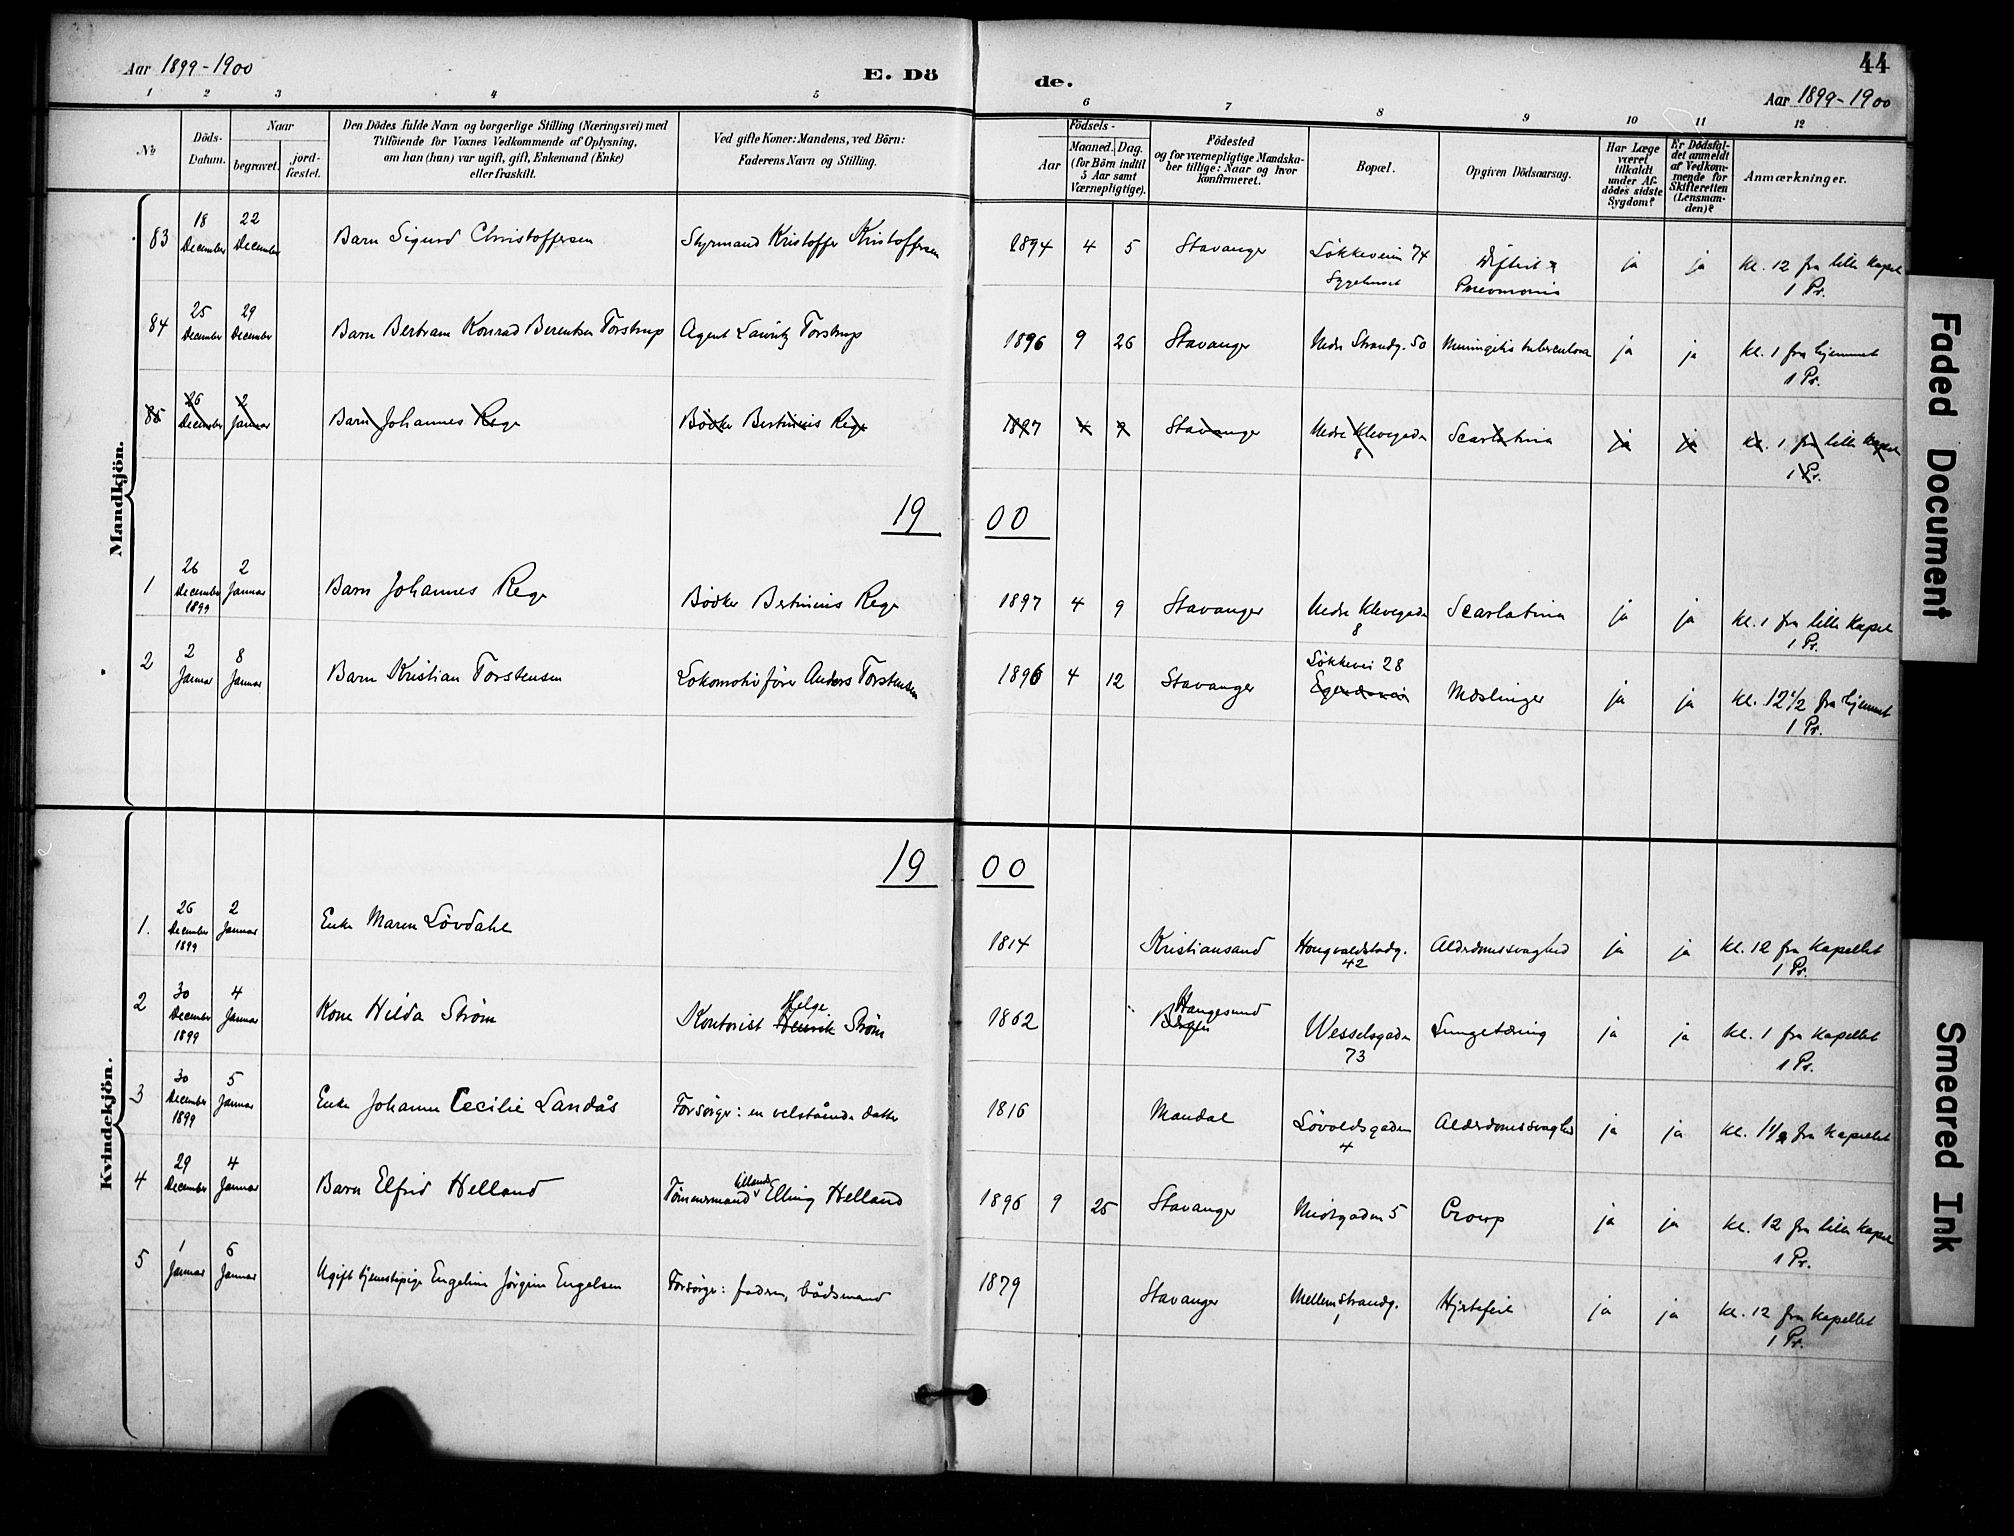 Aar 1899-1900 E. Dö de. 44
Aar 1899-1900
1 2 3 4 5 6 7 8 9 10 11 12
No
Döds-
Datum.
Naar
begravet.
jord-
fæstet.
Den Dödes fulde Navn og borgerlige Stilling (Næringsvei) med
Tilföiende for Voxnes Vedkommende af Oplysning,
om han (hun) var ugift, gift, Enkemand (Enke)
eller fraskilt.
Ved gifte Koner: Mandens, ved Börn:
Faderens Navn og Stilling.
Födsels-
Aar
Maaned. Dag.
(for Börn indtil
5 Aar samt
Værnepligtige).
Födested
og for værnepligtige Mandska-
ber tillige: Naar og hvor
konfirmeret.
Bopæl.
Opgiven Dödsaarsag.
Har Læge
været
tilkaldt
under Af-
dödes sidste
Sygdom?
Er Dödsfal-
det anmeldt
af Vedkom-
mende for
Skifteretten
(Lensman-
den)?
Anmærkninger.
Mandkjön.
83 18 December 22 December Barn Sigurd Christoffersen Styrmand Kristoffer Kristoffersen 1894 4 5 Stavanger Løkkeveien 74 Sygehuset Difteri & Pneumonia ja ja kl. 12 fra lille Kapel 1 Pr.
84 25 December 29 December Barn Bertram Konrad Berentsen Torstrup Agent Lauritz Torstrup 1896 9 26 Stavanger Nedre Strandg. 50 Meningitis tuberculosa ja ja kl. 1 fra hjemmet 1 Pr.
85 26 December 2 Januar Barn Johannes Rege Bödker Bertinius Rege 1897 4 9 Stavanger Nedre Klevegaden 8 Scarlatina ja ja kl. 1 fra lille Kapel 1 Pr.
19 00
1 26 December 1899 2 Januar Barn Johannes Rege Bödker Bertinius Rege 1897 4 9 Stavanger Nedre Klevegaden 8 Scarlatina ja ja kl. 1 fra lille Kapel 1 Pr.
2 2 Januar 8 Januar Barn Kristian Torstensen Lokomotivfører Anders Torstensen 1896 4 12 Stavanger Løkkevei 28 Mæslinger ja ja kl. 12 1/2 fra hjemmet 1 Pr.
Kvindekjön.
19 00
1. 26 December 1899 2 Januar Enke Maren Løvdahl 1814 Kristiansand Hougvaldstadg. 42 Alderdomssvaghed ja ja kl. 12 fra Kapellet 1 Pr.
2 30 December 1899 4 Januar Kone Hilda Strøm Kontorist Henrik Helge Strøm 1862 Bergen Haugesund Wesselsgaden 73 Lungetæring ja ja kl. 1 fra Kapellet 1 Pr.
3 30 December 1899 5 Januar Enke Johanne Cecilie Landås Forsørger: en velstående datter 1816 Mandal Løvoldsgaden 4 Alderdomssvaghed ja ja kl. 1 1/2 fra Kapellet
4 29 December 4 Januar Barn Elfrid Helland Tømmermand Elling Helland 1896 9 25 Stavanger Midtgaden 5 Croup ja ja kl. 12 fra lille Kapel 1 Pr.
5 1 Januar 6 Januar Ugift tjenestepige Engeline Jørgine Engelsen Forsørger: faderen, bådsmand 1879 Stavanger Mellemstrandg. 1 Hjertefeil ja ja kl. 12 fra Kapellet 1 Pr.
Faded Document
Smeared Ink